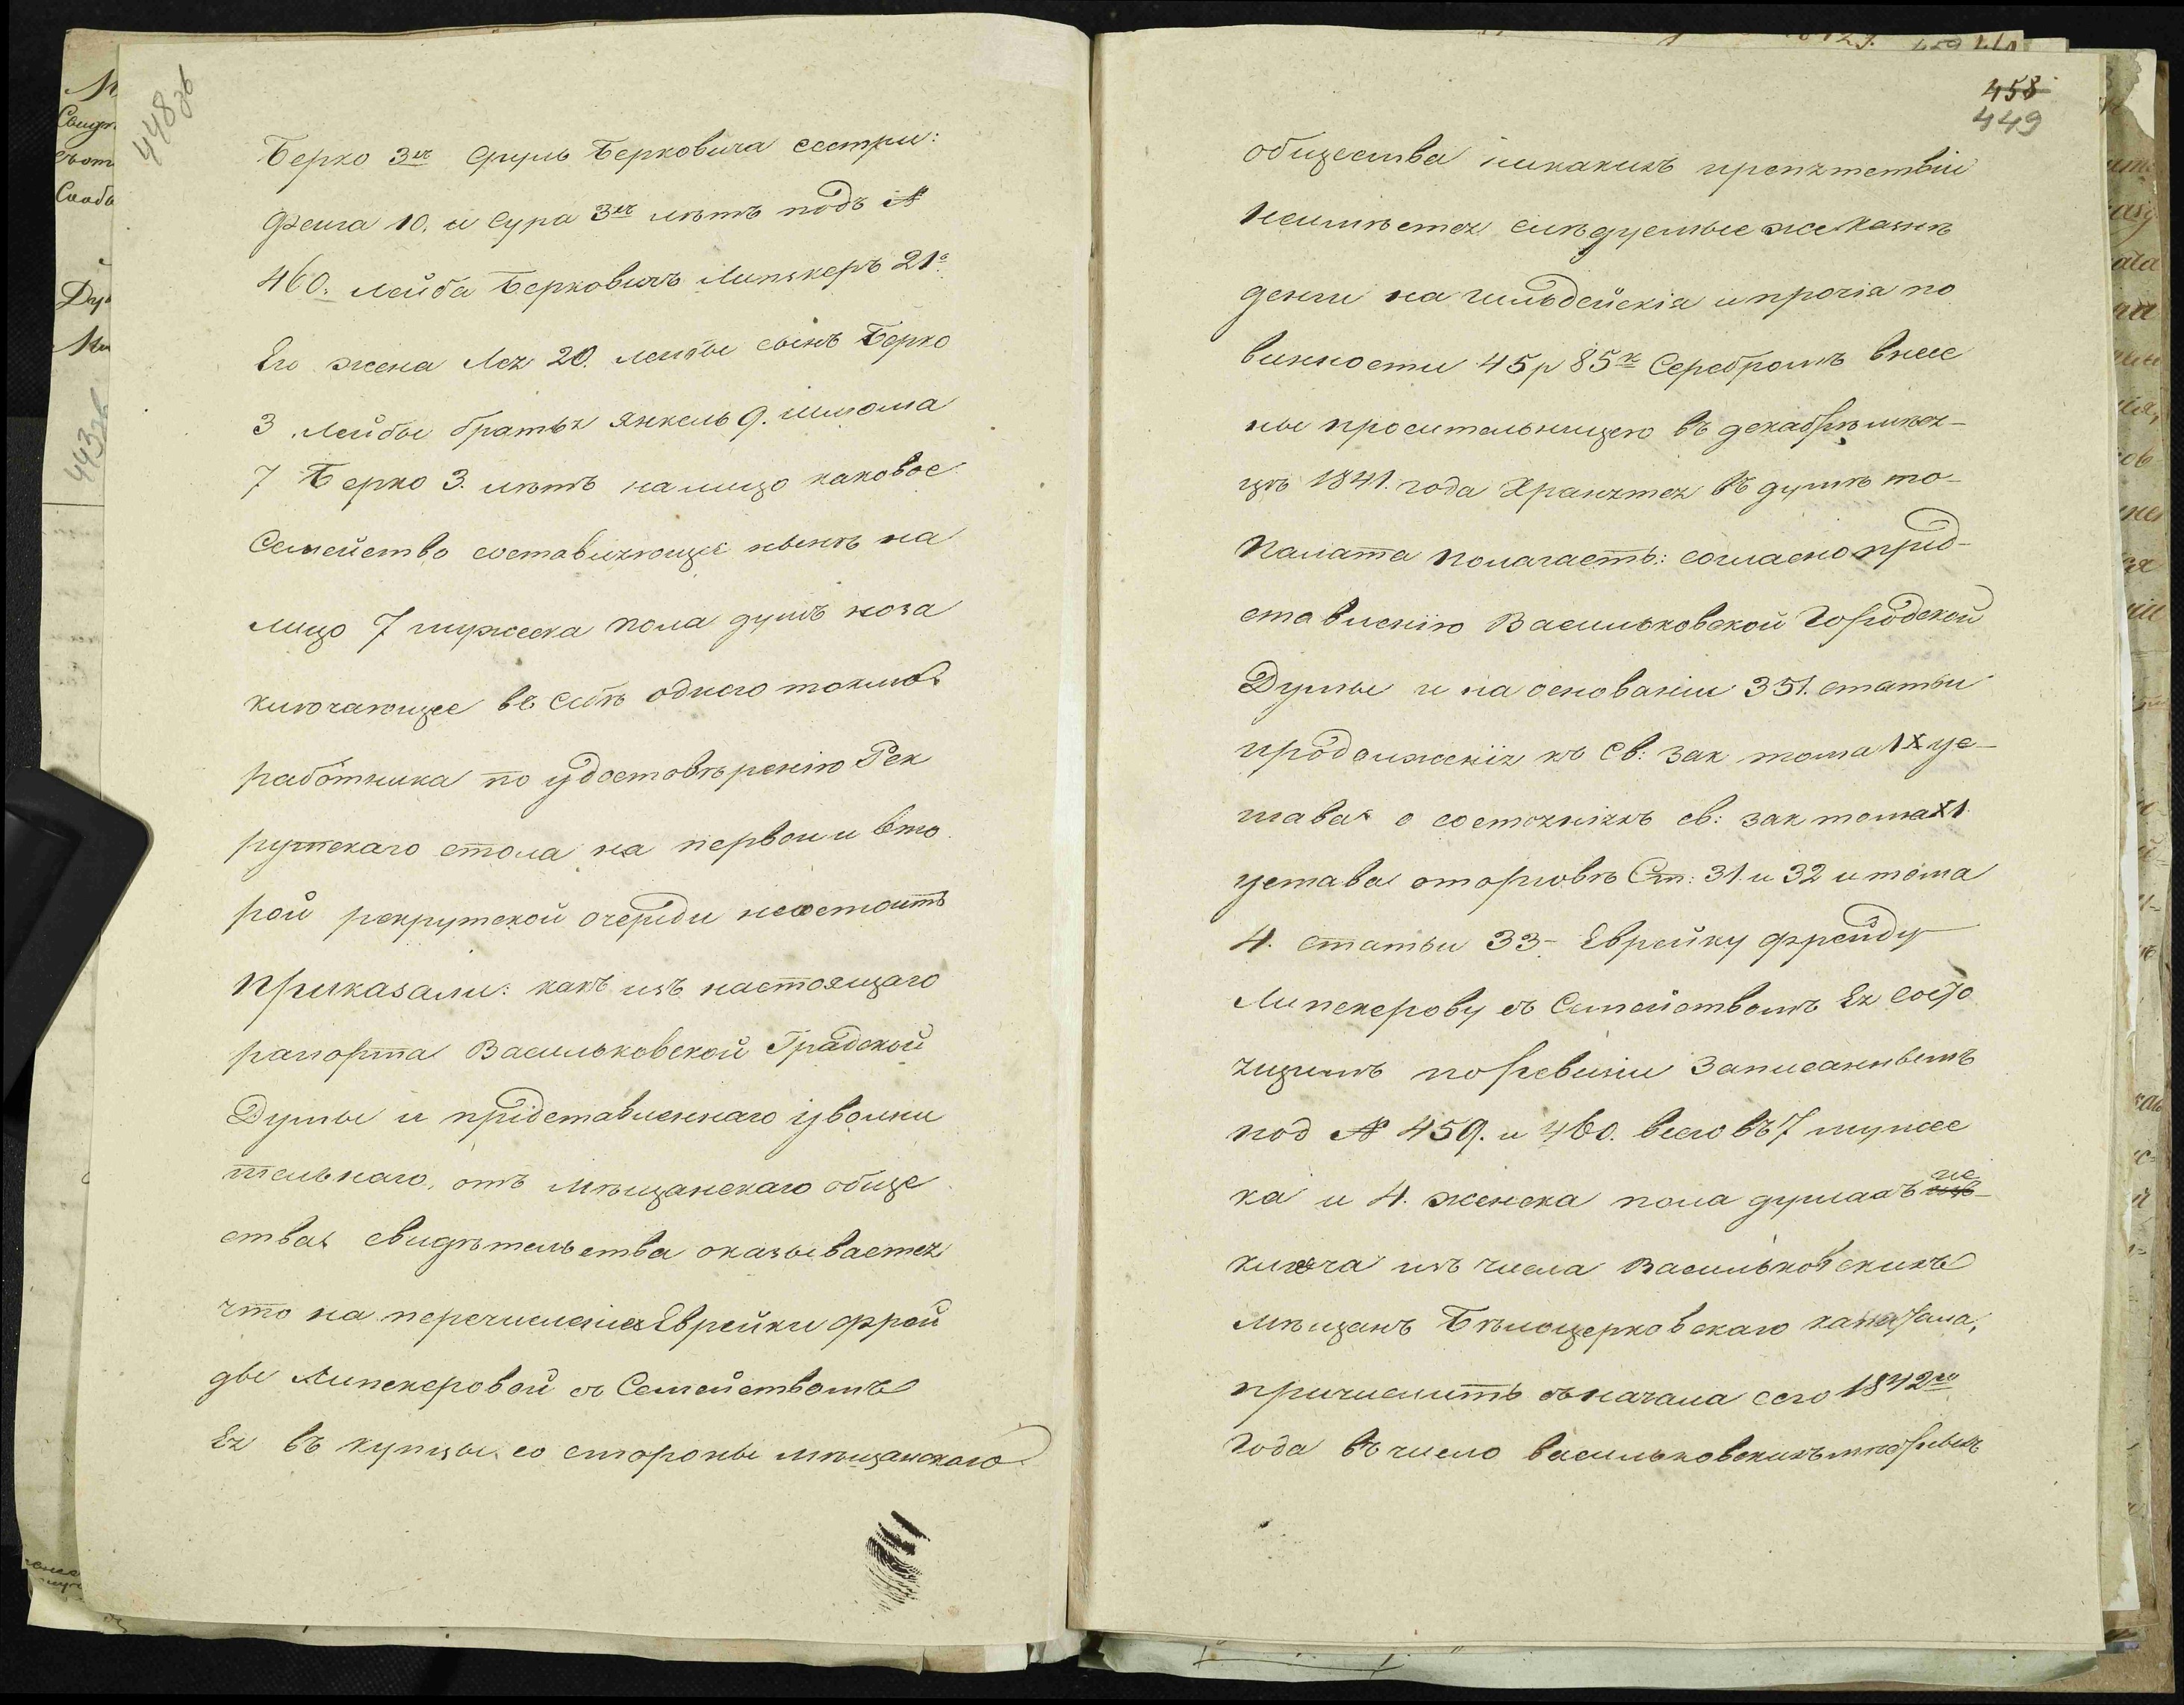 448 зв
Берко 3хъ Сруль Берковича сестри:
Фейга 10. и Сура 3хъ лѣтъ подъ №
460. Лейба Берковичъ Липскеръ 21г
Его жена Лея 20. лейбы сынъ Берко
3 Лейбы братья Янкель 9. Шлома
7 Берко 3. лѣтъ налицо каковое
Семейство составляющее нынѣ на
лицо 7 мужеска пола душъ иоза
ключающее въ себѣ одного токмо
работника по удостовѣренію Рек
рутскаго стола на первой и вто
рой рекрутской очереди несостоитъ
приказали: какъ изъ настоящаго
рапорта Васильковской Градской
Думы и представленнаго увольни
тельнаго, отъ мѣщанскаго обще
ства свидѣтельства оказывается
что на перечисленіе Еврейки Фрей
ды Липскеровой съ Семействомъ
Ея въ купцы, со стороны мѣщанскаго
458
449
общества никакихъ препятствій
неимѣется слѣдуемые же казнѣ
деньги на гильдейскія и прочія по
винности 45 р 85к Серебромъ внесе
ные просительницею въ декабрѣ мѣся-
цѣ 1841. года хранятся въ думѣ то-
Палата полагаетъ: согласно пред-
ставленію Васильковской Городской
Думы и на основаніи 351. статьи
продолженія къ Св: Зак тома IX ус-
тава о состояніяхъ св: зак тома XI
устава оторговлѣ Ст: 31 и 32 и тома
4. статьи 33- Еврейку Фрейду
Липскерову съ Семействомъ Ея состо
ящимъ поревизіи Записаннымъ
под № 459. и 460. всего въ 7 мужес
ка и 4. женска пола душахъ ис
ключа изъ числа Васильковскихъ
мѣщанъ Бѣлоцерковскаго кагала,
причислить съначала сего 1842го
Года въ число васильковскихъ